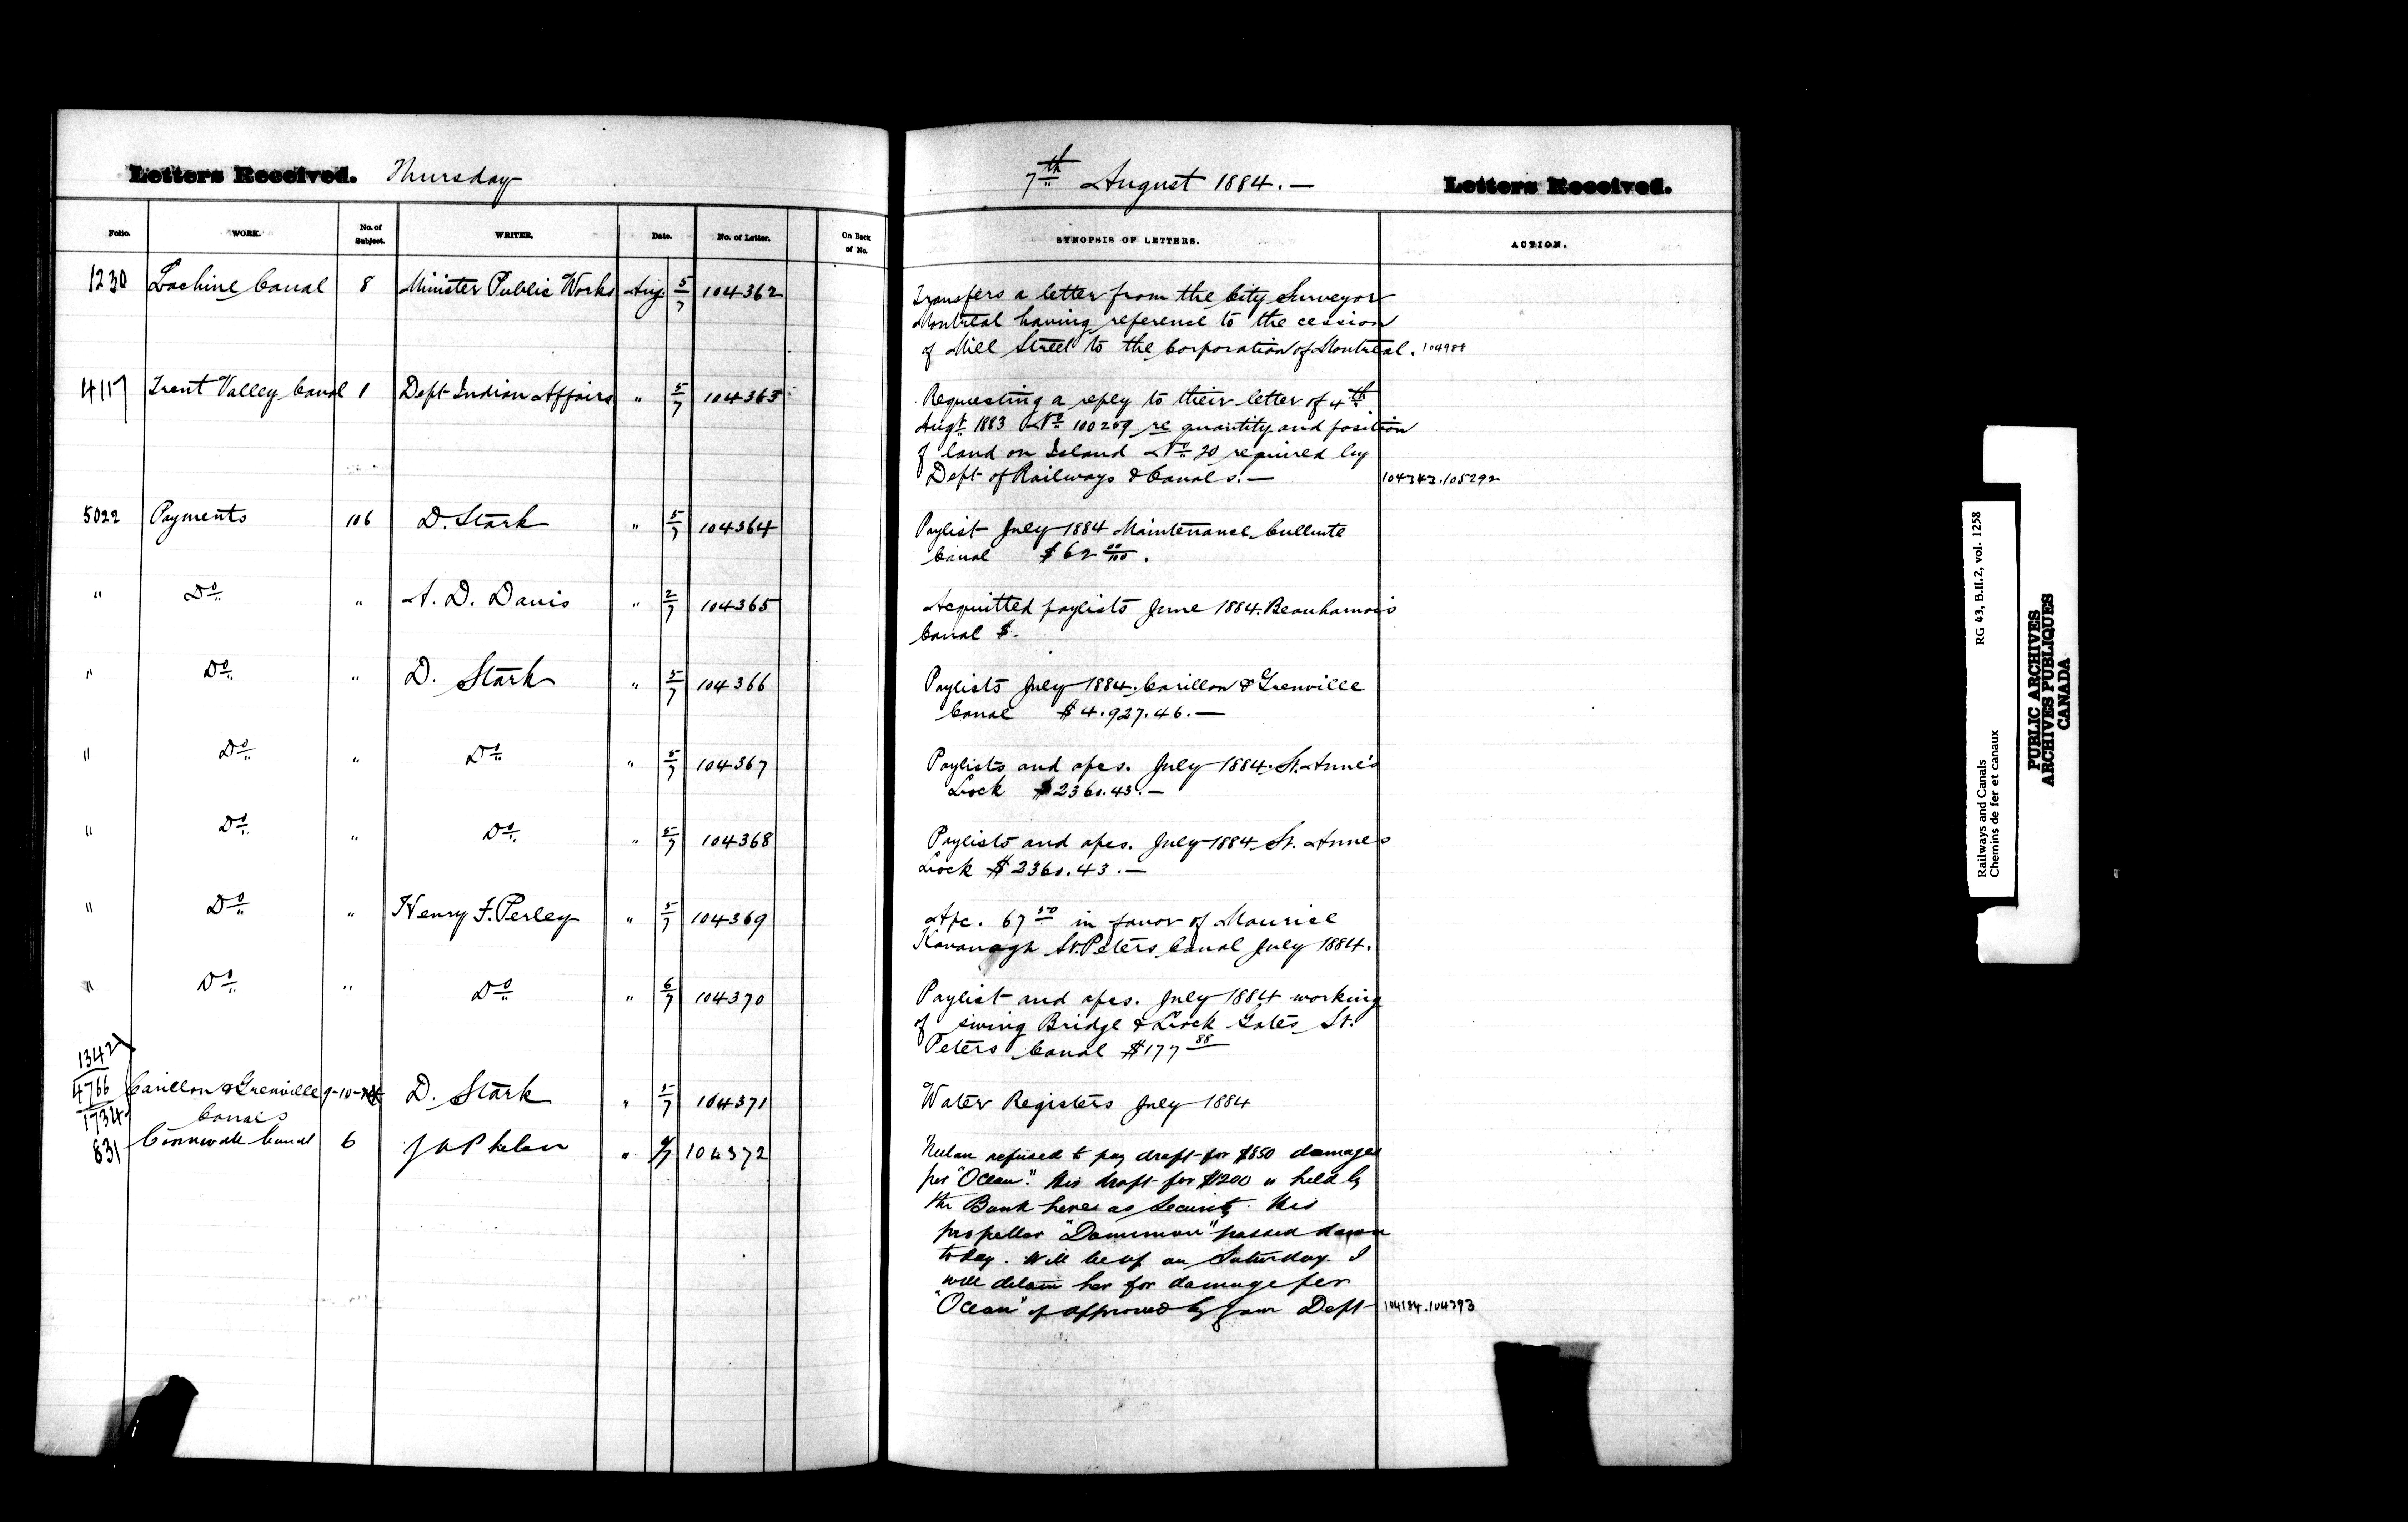 Letters Received. Thursday
7th August 1884. — Letters Received.
Folio. WORK. No. of Subject. WRITER. Date. No. of Letter. On Back of No.
SYNOPSIS OF LETTERS. ACTION.
1230 Lachine Canal 8 Minister Public Works Aug 5/7 104362
Transfers a letter from the City Surveyor
Montreal having reference to the cession
of Mill Street to the Corporation of Montreal. 104988
4117 Trent Valley Canal 1 Dept Indian Affairs " 5/7 104363
Requesting a reply to their letter of 4th
Augt 1883 No 100259 re quantity and position
of land on Island No 20 required by
Dept of Railways & Canals. — 104343.105292
5022 Payments 106 D. Stark " 5/7 104364
Paylist July 1884 Maintenance Cullbute
Canal $62 00/100.
" Do " A. D. Davis " 2/7 104365
Acquitted paylists June 1884. Beauharnois
Canal $.
" Do " D. Stark " 5/7 104366
Paylists July 1884. Carillon & Grenville
Canal $4.927.46. —
" Do " Do " 5/7 104367
Paylists and apcs. July 1884. St. Anne's
Lock $2360.43. —
" Do " Do " 5/7 104368
Paylists and apcs. July 1884 St. Anne's
Lock $2360.43. —
" Do " Henry F. Perley " 5/7 104369
Apc. 67 50 in favor of Maurice
Kavanagh St. Peters Canal July 1884.
" Do " Do " 6/7 104370
Paylist and apcs. July 1884 working
of swing Bridge & Lock Gates St.
Peters Canal $177 88
1342
4766 Carillon & Grenville 9-10- D. Stark " 5/7 104371
1734 Canals
Water Registers July 1884
831 Cornwall Canal 6 " 104372
Neelan refused to pay draft for $850 damages
per "Ocean". His draft for $1200 is held by
the Bank here as Security. His
propellor "Dominion" passed down
to day. Will be up on Saturday. I
will detain her for damage per
"Ocean" if approved by your Dept 104184.104393
Railways and Canals RG 43, B.II.2, vol. 1258
Chemins de fer et canaux
PUBLIC ARCHIVES
ARCHIVES PUBLIQUES
CANADA